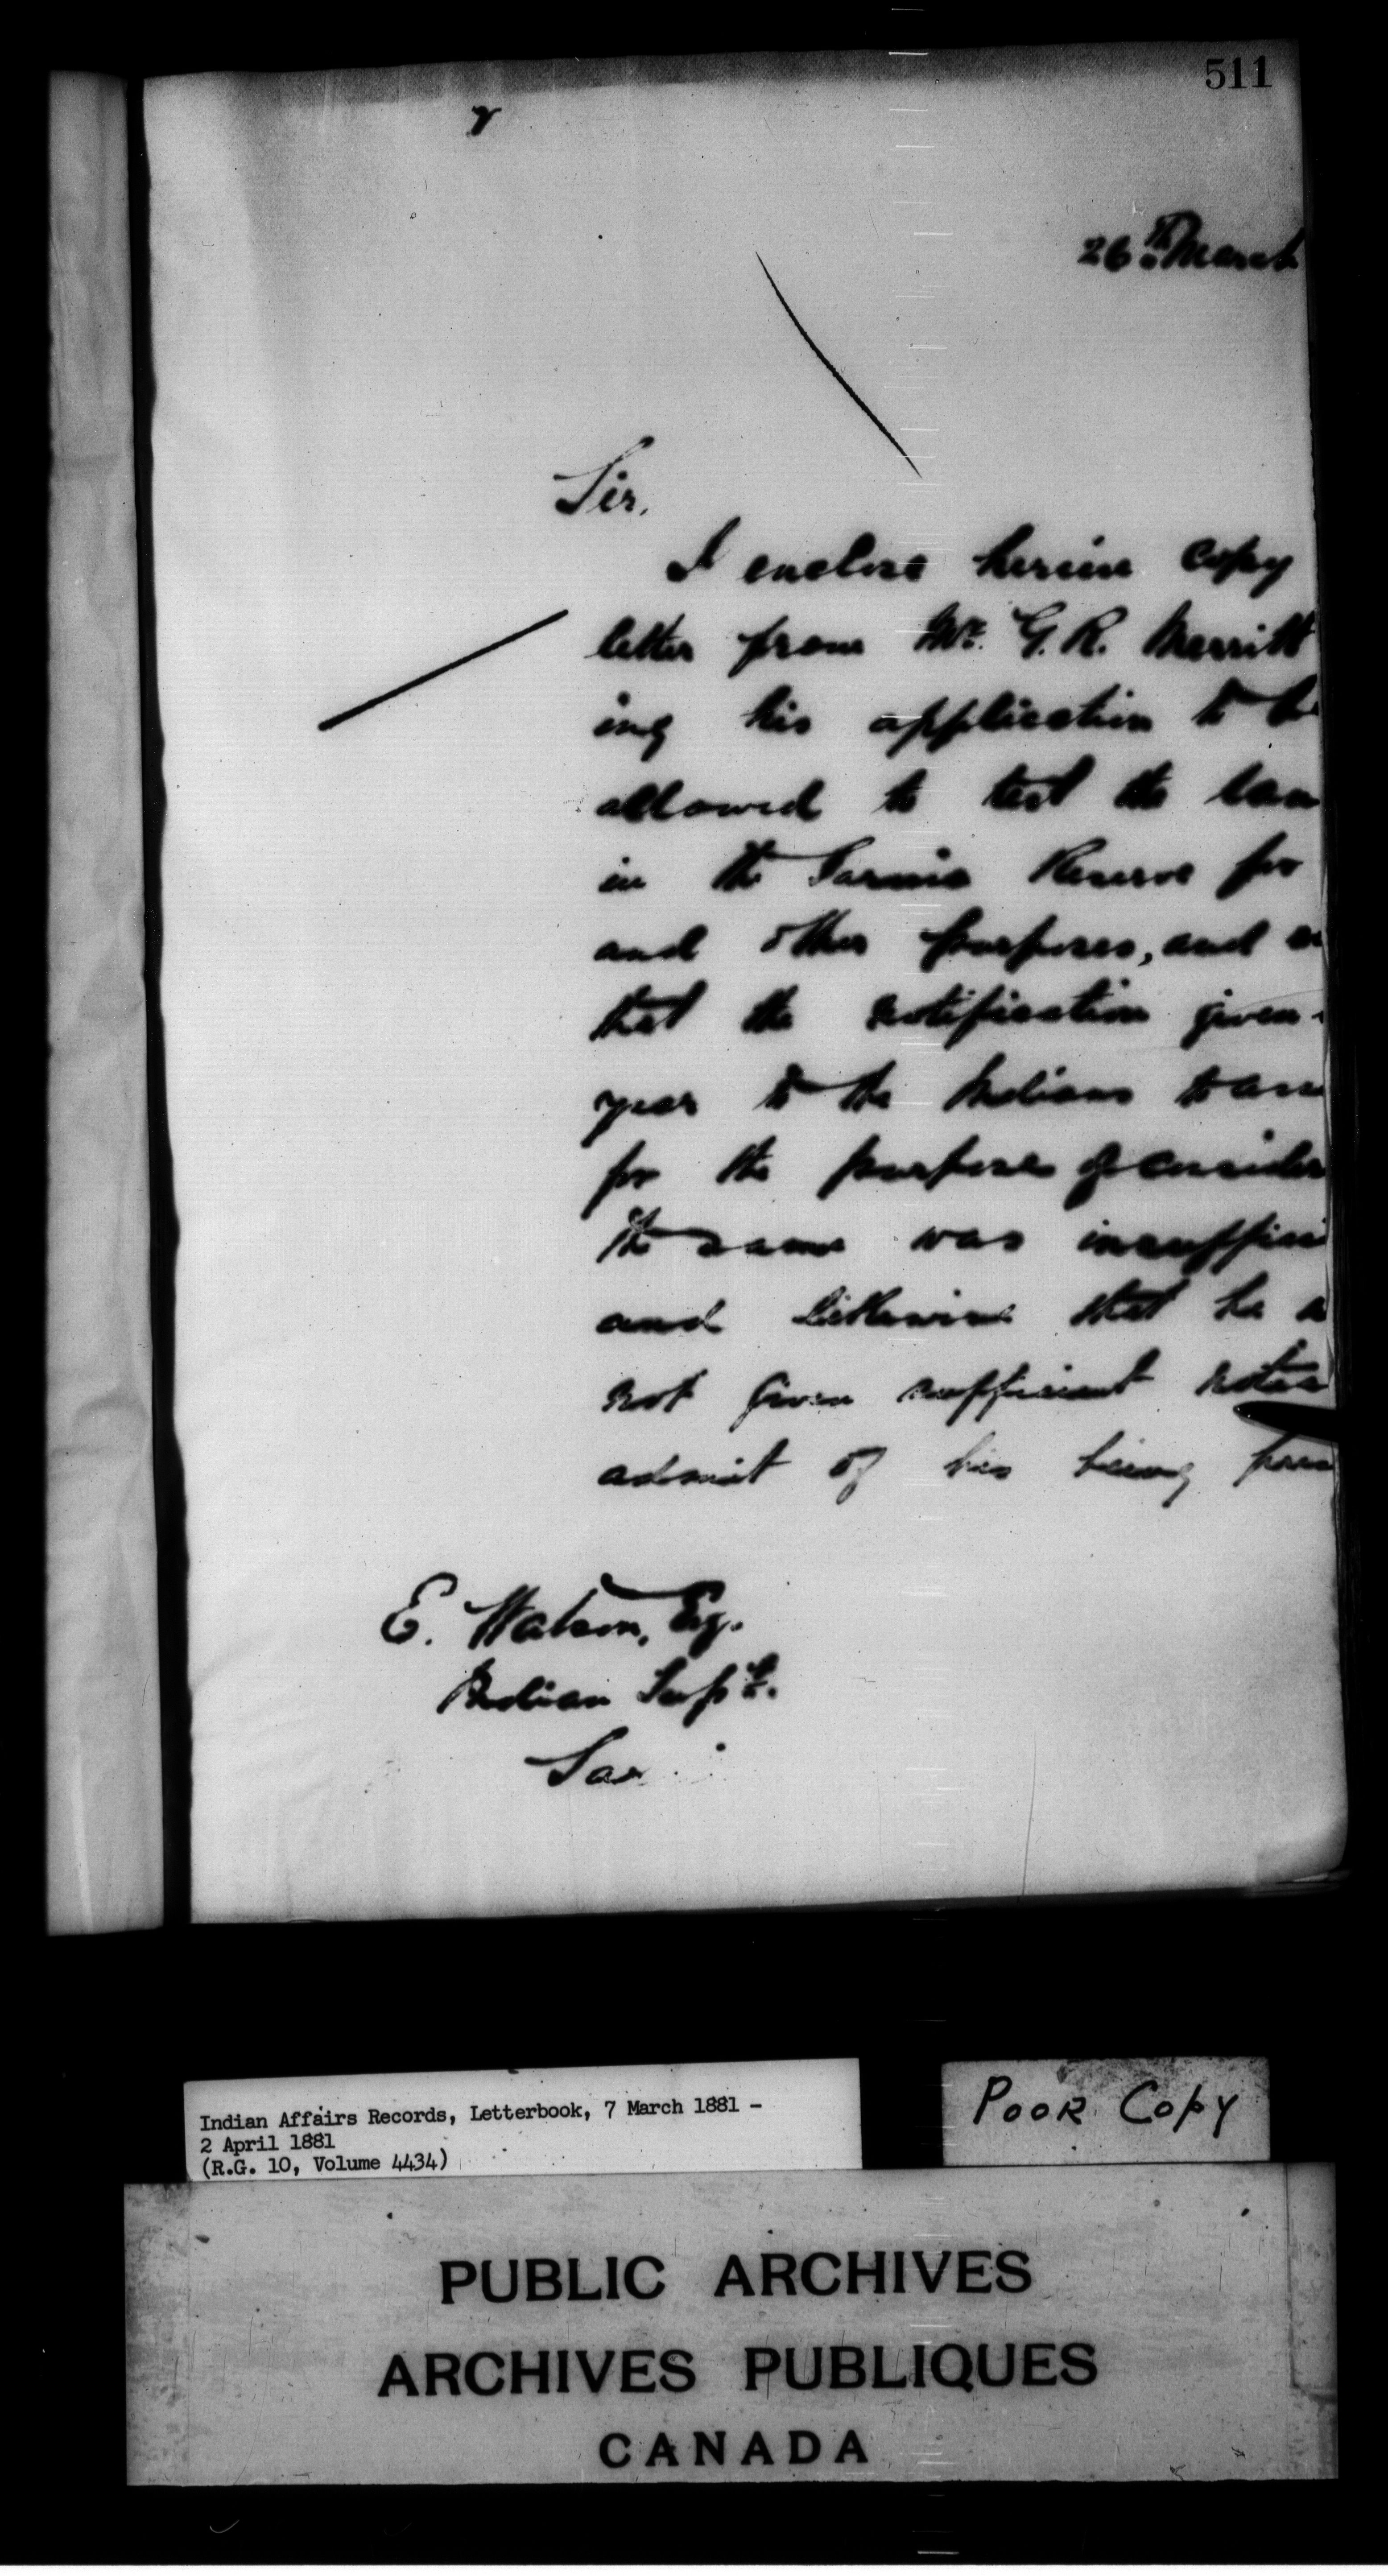 511
26th March
Sir,
I enclose herein copy
letter from Mr. G. R. Merritt
ing his application to be
allowed to test the lan
in the Sarnia Reserve for
and other purposes, and
that the notification given
year to the Indians to
for the purpose of consider
the same was insuffici
and likewise that he
not given sufficient notice
admit of his being pres
E. Watson, Esq.
Indian Supt.
Sar
Indian Affairs Records, Letterbook, 7 March 1881 -
2 April 1881
(R.G. 10, Volume 4434)
POOR COPY
PUBLIC ARCHIVES
ARCHIVES PUBLIQUES
CANADA